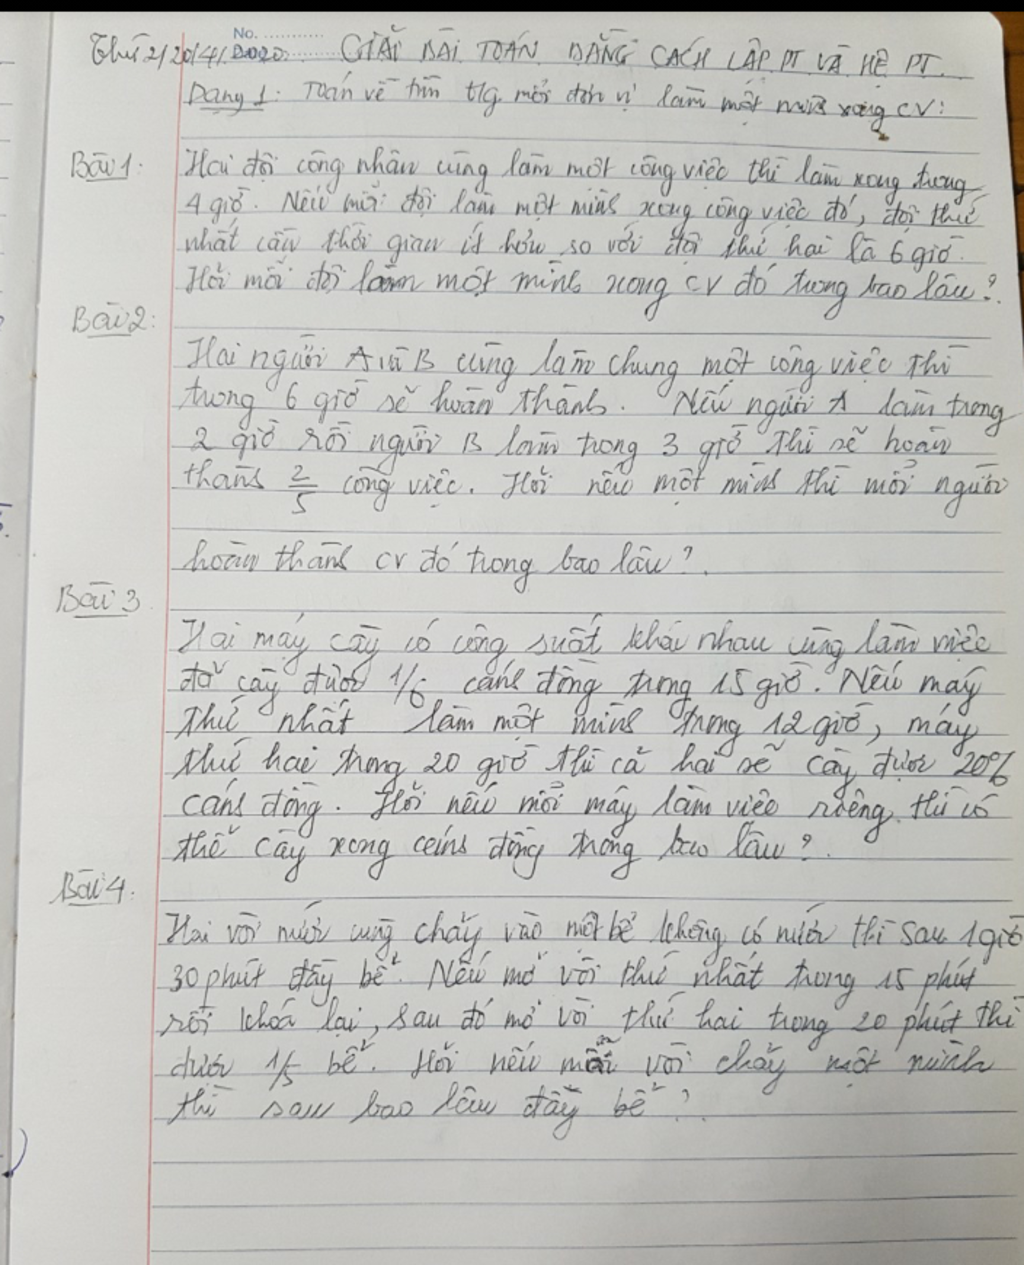 No.
Thứ 2/20/4/2020. GIẢI BÀI TOÁN BẰNG CÁCH LẬP PT VÀ HỆ PT.
Dạng 1: Toán về tìm t/g mỗi đơn vị làm một mình xong CV:
Bài 1: Hai đội công nhân cùng làm một công việc thì làm xong trong
4 giờ. Nếu mỗi đội làm một mình xong công việc đó, đội thứ
nhất cần thời gian ít hơn so với đội thứ hai là 6 giờ.
Hỏi mỗi đội làm một mình xong CV đó trong bao lâu?.
Bài 2:
Hai người A và B cùng làm chung một công việc thì
trong 6 giờ sẽ hoàn thành. Nếu người A làm trong
2 giờ rồi người B làm trong 3 giờ thì sẽ hoàn
thành 2/5 công việc. Hỏi nếu một mình thì mỗi người
hoàn thành CV đó trong bao lâu?.
Bài 3
Hai máy cày có công suất khác nhau cùng làm việc
đã cày được 1/6 cánh đồng trong 15 giờ. Nếu máy
thứ nhất làm một mình trong 12 giờ, máy
thứ hai trong 20 giờ thì cả hai sẽ cày được 20%
cánh đồng. Hỏi nếu mỗi máy làm việc riêng thì có
thể cày xong cánh đồng trong bao lâu?.
Bài 4:
Hai vòi nước cùng chảy vào một bể không có nước thì sau 1 giờ
30 phút đầy bể. Nếu mở vòi thứ nhất trong 15 phút
rồi khoá lại, sau đó mở vòi thứ hai trong 20 phút thì
được 1/5 bể. Hỏi nếu mỗi vòi chảy một mình
thì sau bao lâu đầy bể?